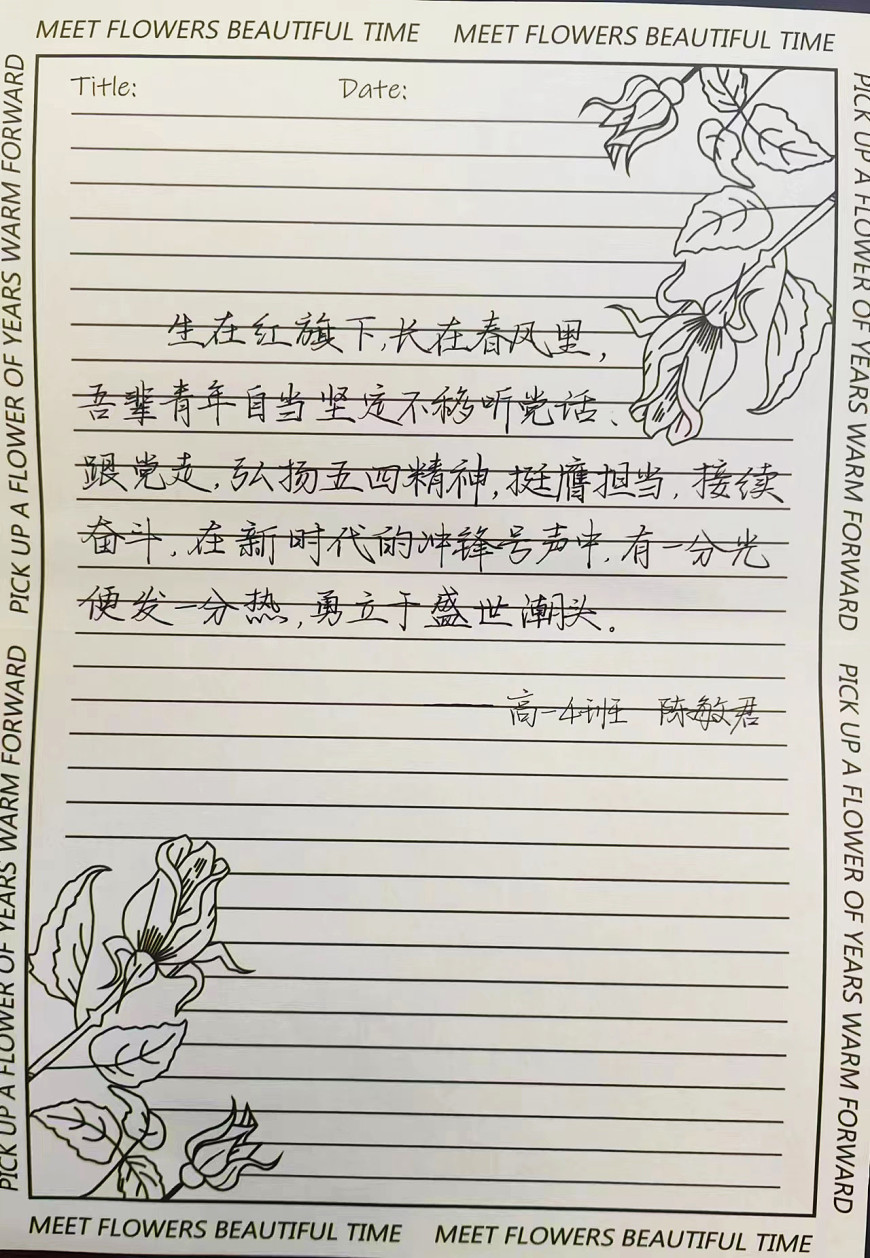 MEET FLOWERS BEAUTIFUL TIME MEET FLOWERS BEAUTIFUL TIME
Title: Date:
生在红旗下,长在春风里,
吾辈青年自当坚定不移听党话、
跟党走,弘扬五四精神,挺膺担当,接续
奋斗,在新时代的冲锋号声中,有一分光
便发一分热,勇立于盛世潮头。
——高一4班 陈敏君
PICK UP A FLOWER OF YEARS WARM FORWARD
PICK UP A FLOWER OF YEARS WARM FORWARD
PICK UP A FLOWER OF YEARS WARM FORWARD
PICK UP A FLOWER OF YEARS WARM FORWARD
MEET FLOWERS BEAUTIFUL TIME MEET FLOWERS BEAUTIFUL TIME